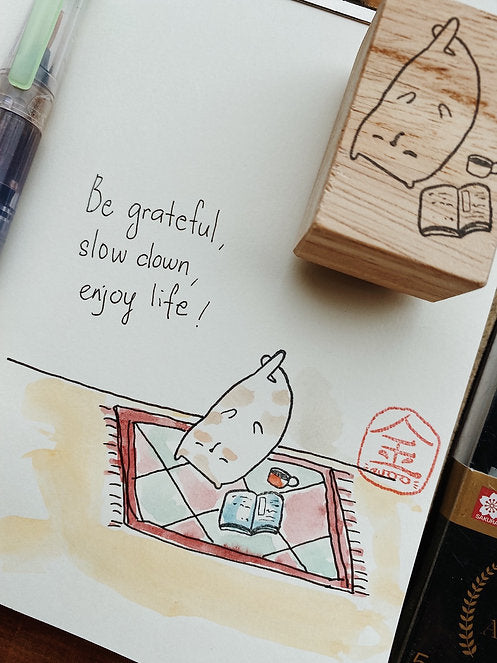 Be grateful,
slow down,
enjoy life!
SAKURA